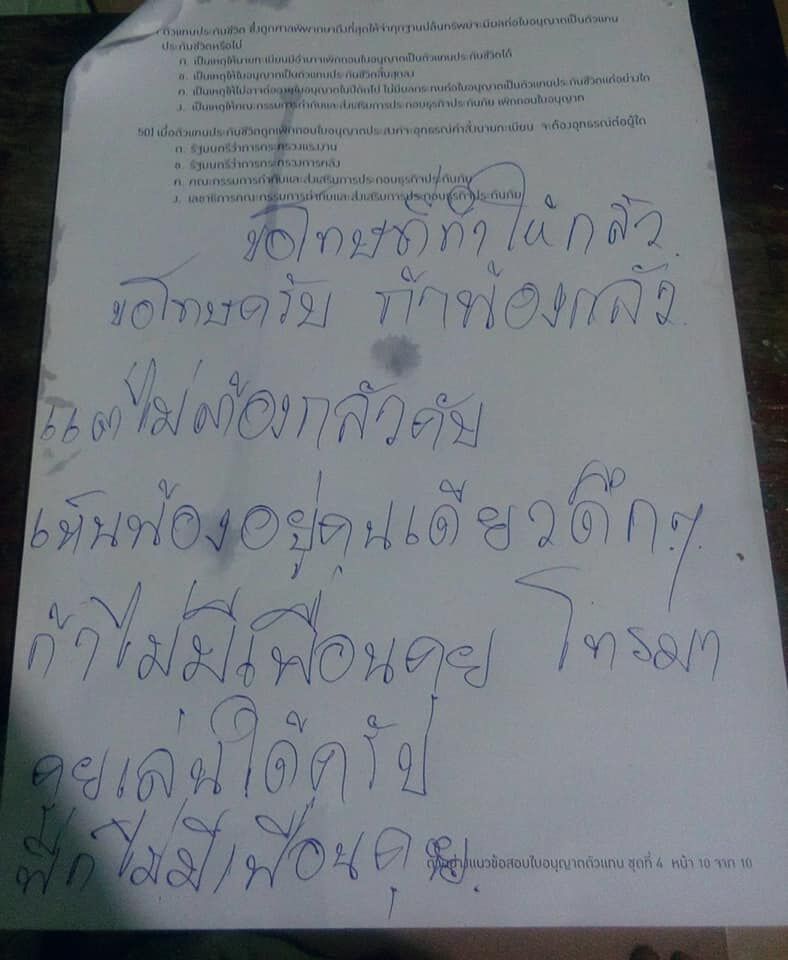 ตัวแทนประกันชีวิต ซึ่งถูกศาลพิพากษาถึงที่สุดให้จำคุกฐานปล้นทรัพย์จะมีผลต่อใบอนุญาตเป็นตัวแทน
ประกันชีวิตหรือไม่
ก. เป็นเหตุให้นายทะเบียนมีอำนาจเพิกถอนใบอนุญาตเป็นตัวแทนประกันชีวิตได้
ข. เป็นเหตุให้ใบอนุญาตเป็นตัวแทนประกันชีวิตสิ้นสุดลง
ค. เป็นเหตุให้ไม่อาจต่ออายุใบอนุญาตในปีถัดไป ไม่มีผลกระทบต่อใบอนุญาตเป็นตัวแทนประกันชีวิตแต่อย่างใด
ง. เป็นเหตุให้คณะกรรมการกำกับและส่งเสริมการประกอบธุรกิจประกันภัย เพิกถอนใบอนุญาต
50) เมื่อตัวแทนประกันชีวิตถูกเพิกถอนใบอนุญาตประสงค์จะอุทธรณ์คำสั่งนายทะเบียน จะต้องอุทธรณ์ต่อผู้ใด
ก. รัฐมนตรีว่าการกระทรวงแรงงาน
ข. รัฐมนตรีว่าการกระทรวงการคลัง
ค. คณะกรรมการกำกับและส่งเสริมการประกอบธุรกิจประกันภัย
ง. เลขาธิการคณะกรรมการกำกับและส่งเสริมการประกอบธุรกิจประกันภัย
ขอโทษที่ทำให้กลัว
ขอโทษครับ ถ้าน้องกลัว
แต่ไม่ต้องกลัวคับ
เห็นน้องอยู่คนเดียวดึกๆ
ถ้าไม่มีเพื่อนคุย โทรมา
คุยเล่นได้ครับ
พี่ก็ไม่มีเพื่อนคุย
ตัวอย่างแนวข้อสอบใบอนุญาตตัวแทน ชุดที่ 4 หน้า 10 จาก 10